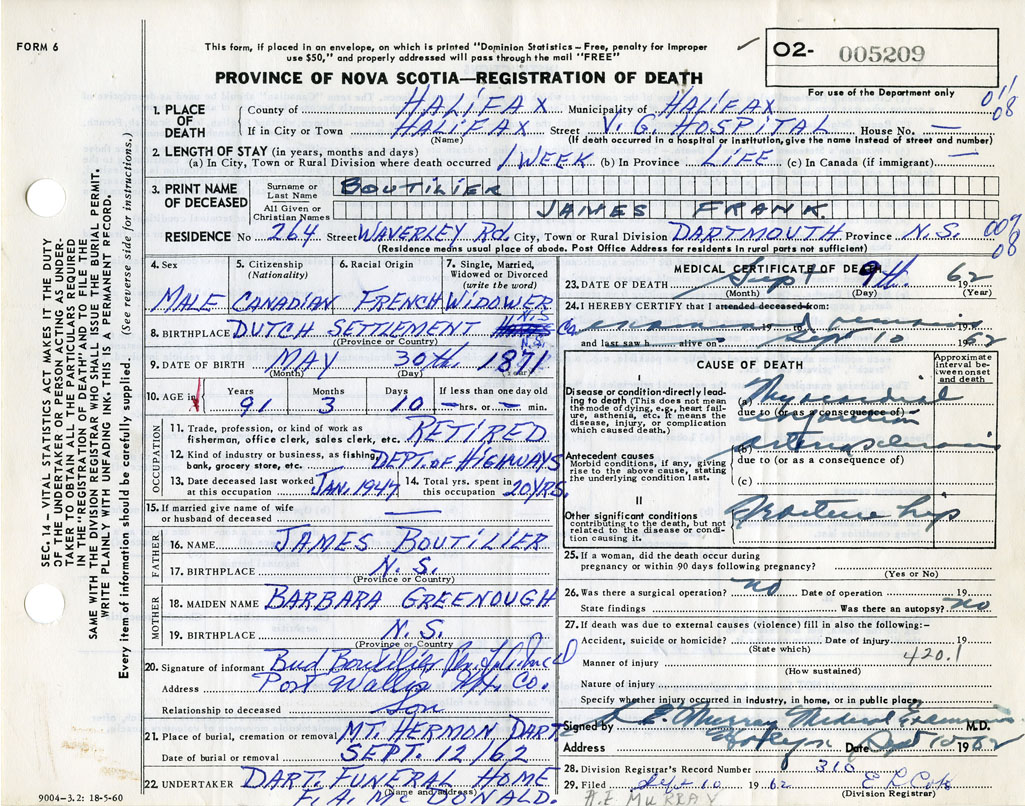 FORM 6
This form, if placed in an envelope, on which is printed "Dominion Statistics – Free, penalty for improper
use $50," and properly addressed will pass through the mail "FREE"
PROVINCE OF NOVA SCOTIA—REGISTRATION OF DEATH
O2- 005209
For use of the Department only
011
08
SEC. 14 – VITAL STATISTICS ACT MAKES IT THE DUTY
OF THE UNDERTAKER OR PERSON ACTING AS UNDER-
TAKER TO OBTAIN ALL THE PARTICULARS REQUIRED
IN THE "REGISTRATION OF DEATH" AND TO FILE THE
SAME WITH THE DIVISION REGISTRAR WHO SHALL ISSUE THE BURIAL PERMIT.
WRITE PLAINLY WITH UNFADING INK. THIS IS A PERMANENT RECORD.
Every item of information should be carefully supplied. (See reverse side for instructions.)
1. PLACE OF DEATH
County of HALIFAX Municipality of HALIFAX
If in City or Town HALIFAX Street V. G. HOSPITAL House No. —
(Name) (If death occurred in a hospital or institution, give the name instead of street and number)
2. LENGTH OF STAY (in years, months and days)
(a) In City, Town or Rural Division where death occurred 1 WEEK (b) In Province LIFE (c) In Canada (if immigrant) —
3. PRINT NAME OF DECEASED
Surname or Last Name BOUTILIER
All Given or Christian Names JAMES FRANK.
RESIDENCE No 264 Street WAVERLEY Rd. City, Town or Rural Division DARTMOUTH Province N.S.
009
08
(Residence means usual place of abode. Post Office Address for residents in rural parts not sufficient)
4. Sex 5. Citizenship (Nationality) 6. Racial Origin 7. Single, Married, Widowed or Divorced (write the word)
MALE CANADIAN FRENCH WIDOWER
8. BIRTHPLACE DUTCH SETTLEMENT N.S. Co. N.S.
(Province or Country)
9. DATE OF BIRTH MAY 30th. 1871
(Month) (Day) (Year)
10. AGE in Years 91 Months 3 Days 10 If less than one day old — hrs. or — min.
OCCUPATION
11. Trade, profession, or kind of work as fisherman, office clerk, sales clerk, etc. RETIRED
12. Kind of industry or business, as fishing, bank, grocery store, etc. DEPT. OF HIGHWAYS
13. Date deceased last worked at this occupation JAN. 1947 14. Total yrs. spent in this occupation 20 YRS.
15. If married give name of wife or husband of deceased —
FATHER
16. NAME JAMES BOUTILIER
17. BIRTHPLACE N.S.
(Province or Country)
MOTHER
18. MAIDEN NAME BARBARA GREENOUGH
19. BIRTHPLACE N.S.
(Province or Country)
20. Signature of informant Bud Boutilier
Address Port Wallis Hfx. Co.
Relationship to deceased Son
21. Place of burial, cremation or removal MT. HERMON, DART.
Date of burial or removal SEPT. 12/62
22. UNDERTAKER DART. FUNERAL HOME
(Name and address)
F. A. McDONALD.
9004-3.2: 18-5-60
MEDICAL CERTIFICATE OF DEATH
23. DATE OF DEATH Sept 9th. 1962
(Month) (Day) (Year)
24. I HEREBY CERTIFY that I attended deceased from:
examined remains 19 to 19
and last saw h alive on Sept 10 1962
CAUSE OF DEATH
Approximate interval between onset and death
I
Disease or condition directly leading to death (This does not mean the mode of dying, e.g., heart failure, asthenia, etc. It means the disease, injury, or complication which caused death.)
(a) Myocardial infarction
due to (or as a consequence of)
Antecedent causes
Morbid conditions, if any, giving rise to the above cause, stating the underlying condition last.
(b) arteriosclerosis
due to (or as a consequence of)
(c)
II
Other significant conditions contributing to the death, but not related to the disease or condition causing it.
Fracture hip
25. If a woman, did the death occur during pregnancy or within 90 days following pregnancy?
(Yes or No)
26. Was there a surgical operation? no Date of operation 19
State findings Was there an autopsy? no
27. If death was due to external causes (violence) fill in also the following:–
Accident, suicide or homicide? Date of injury 19
(State which)
420.1
Manner of injury
(How sustained)
Nature of injury
Specify whether injury occurred in industry, in home, or in public place
Signed by Murray Medical Examiner M.D.
Address Date Sept 10 1962
28. Division Registrar's Record Number 310
29. Filed Sept 10 1962
(Division Registrar)
A.E. MURRAY